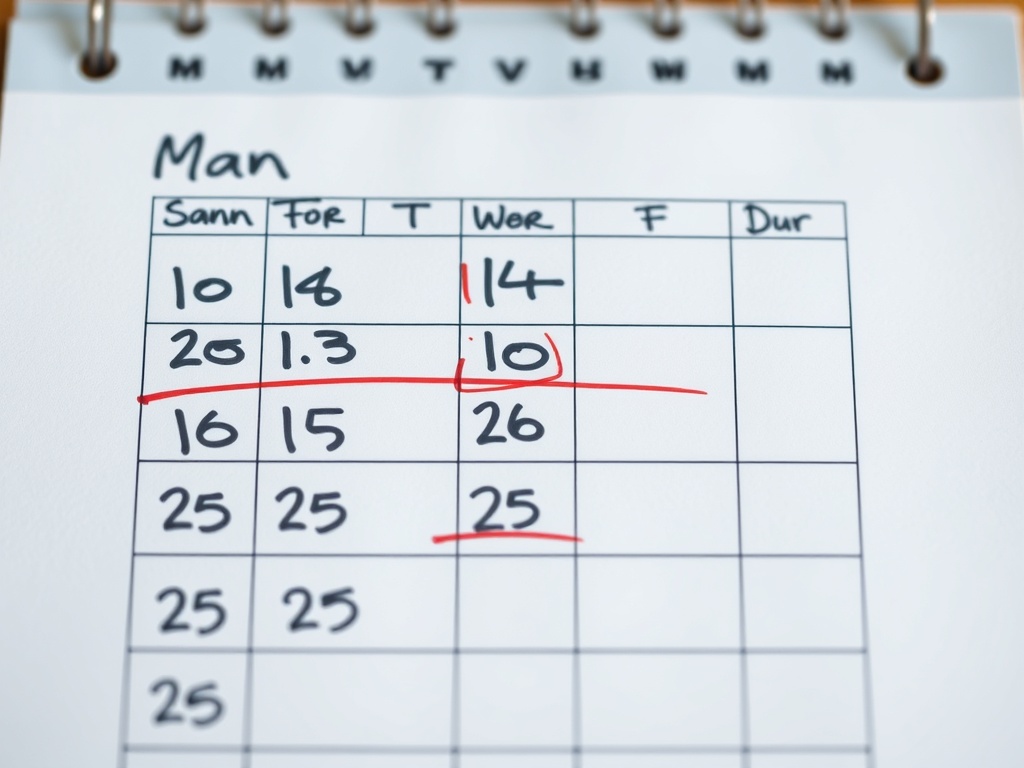 M M V T V H W M M
Man
Sann For T Wor F Dur
10 18 14
20 1.3 10
16 15 26
25 25 25
25 25
25